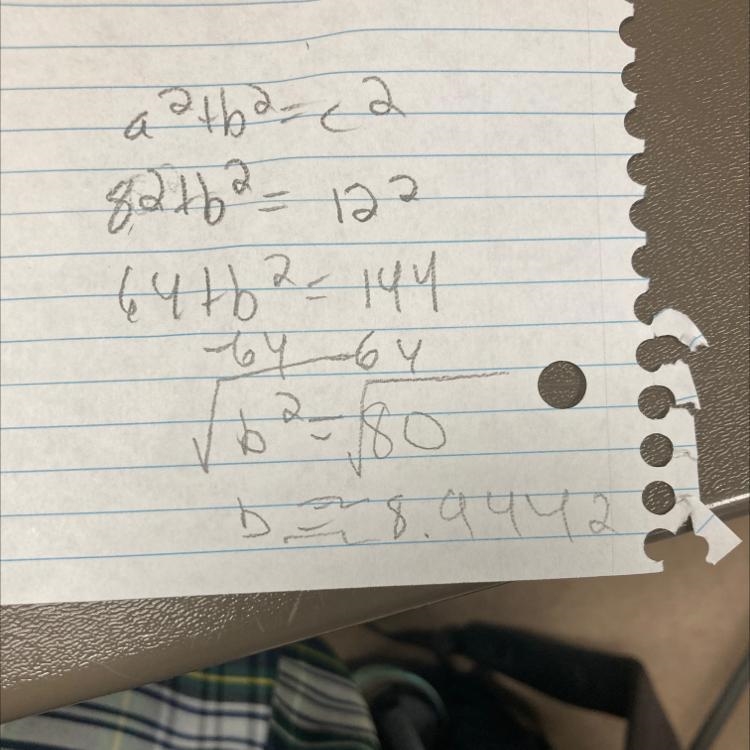 a²+b²=c²
8²+b²= 12²
64+b²= 144
-64 -64
√b²=√80
b ≈ 8.94442